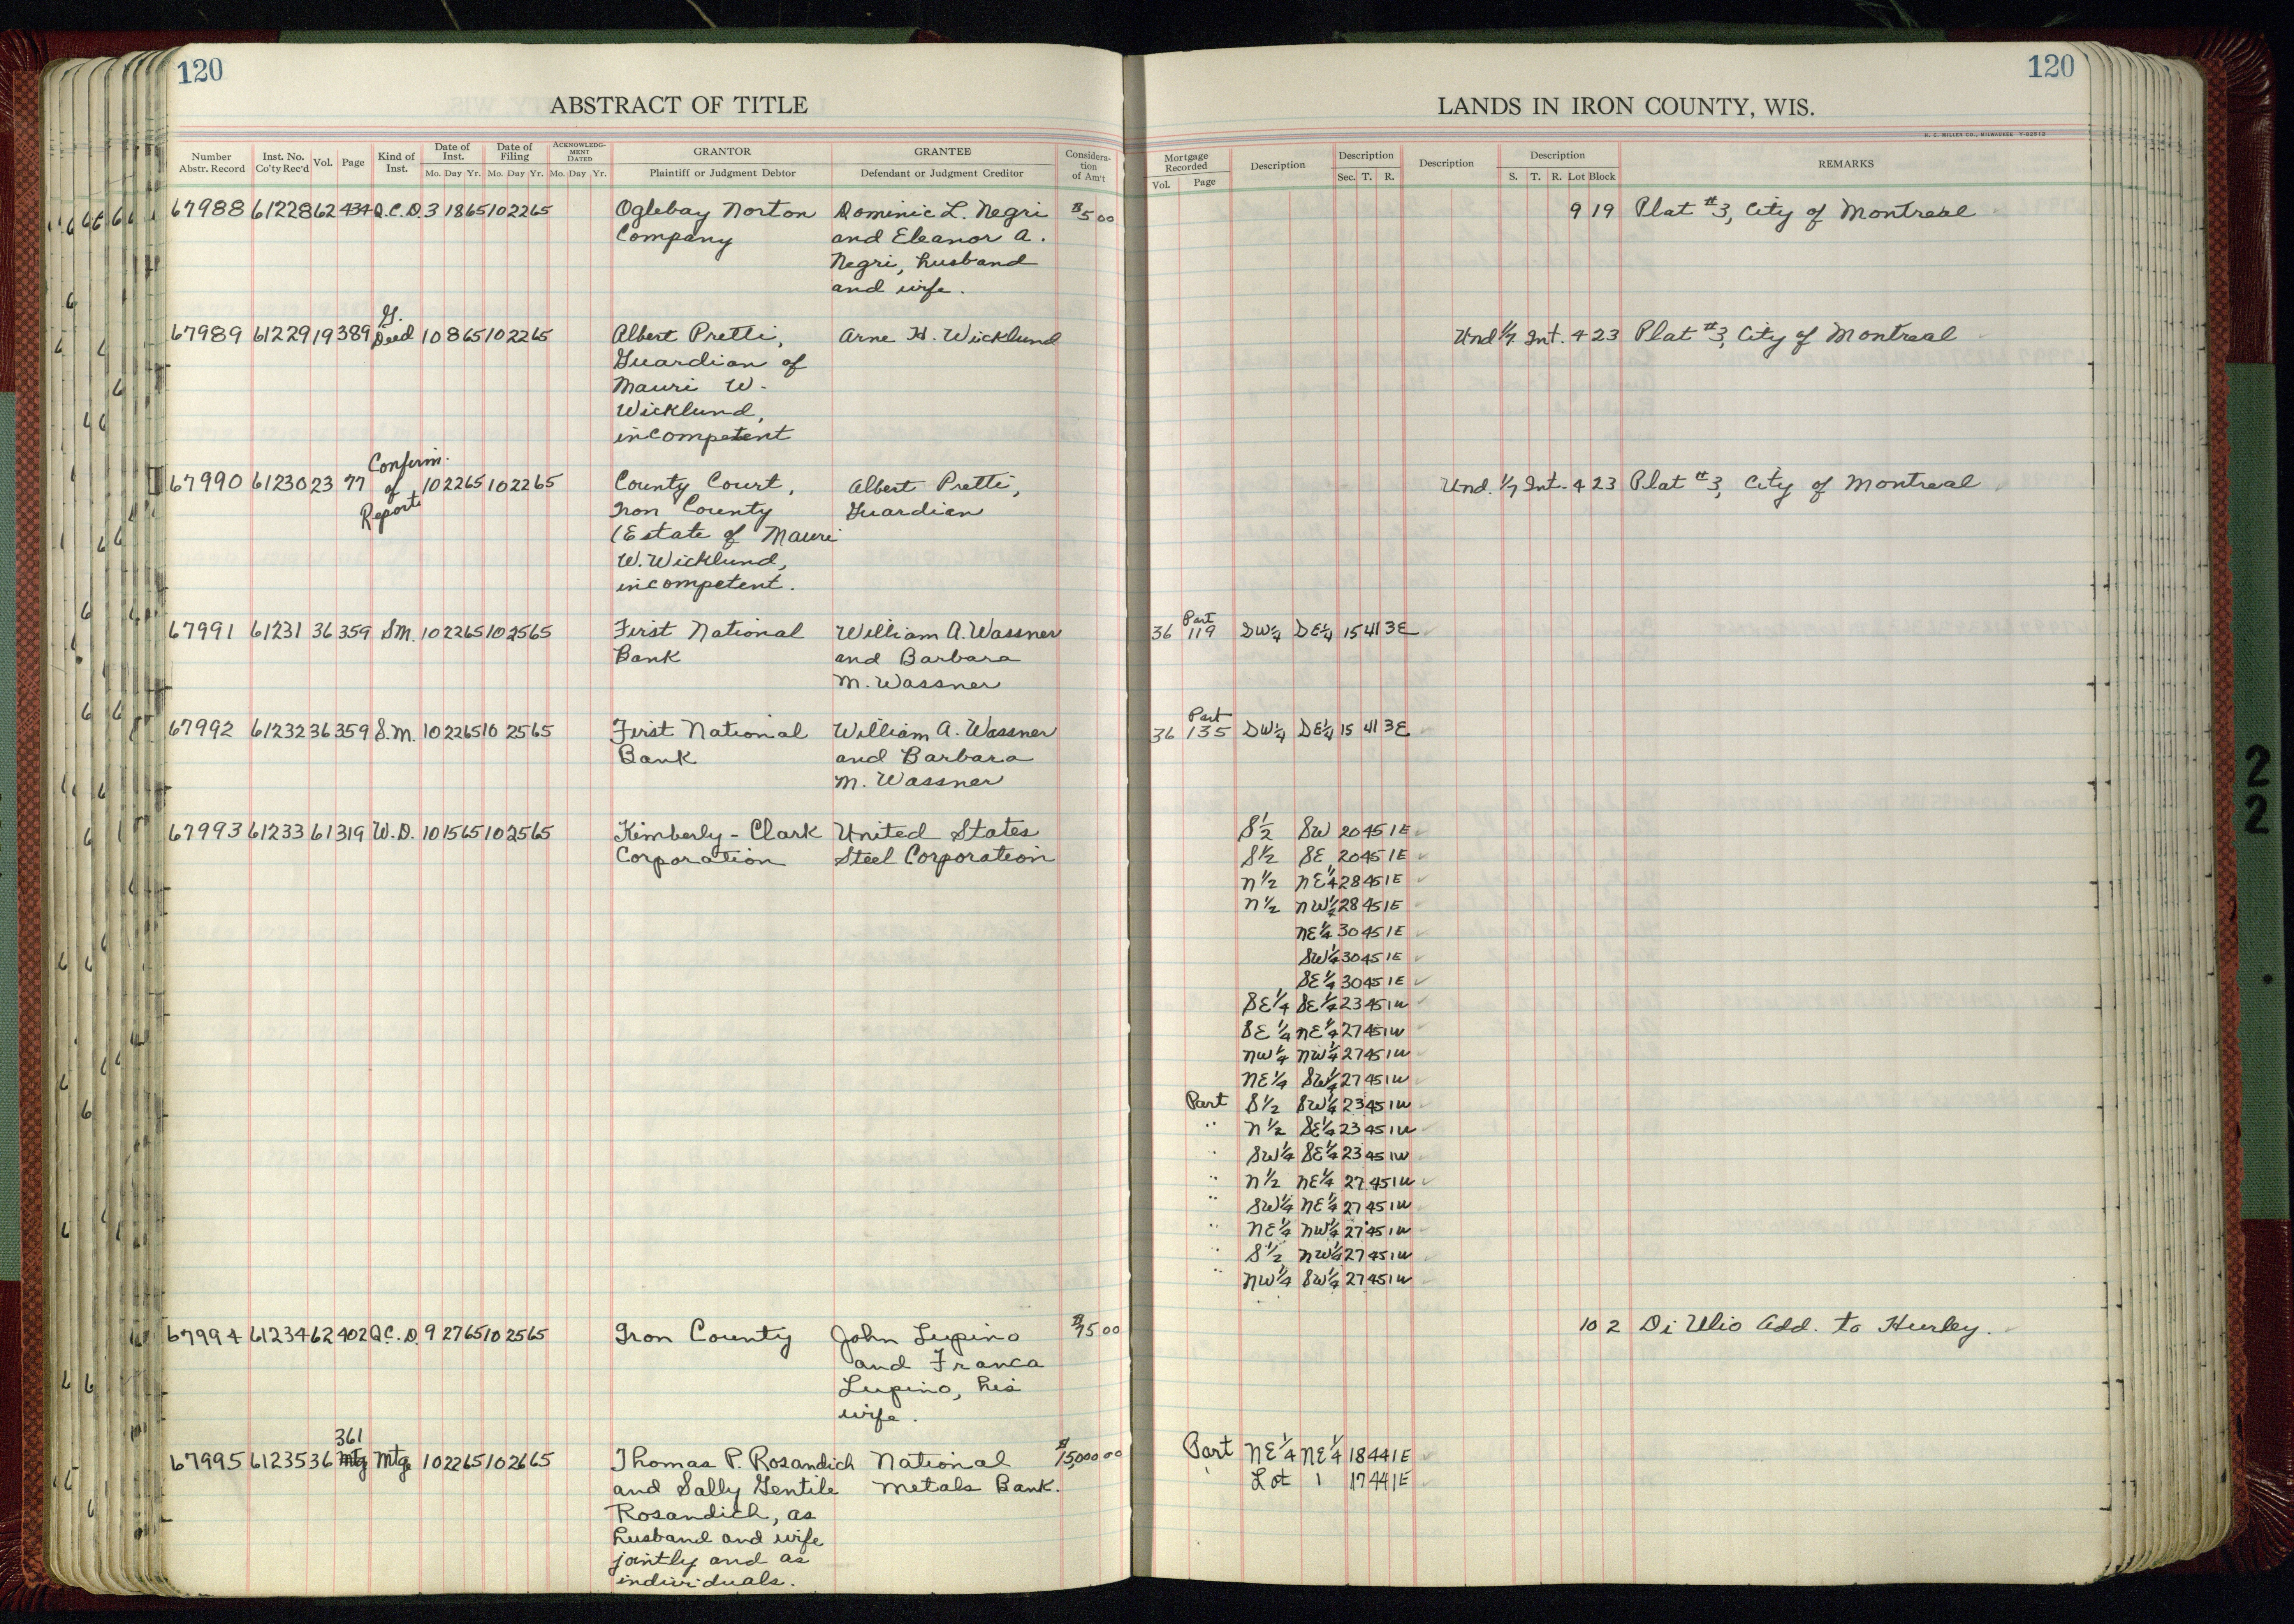 120
ABSTRACT OF TITLE
Number Abstr. Record Inst. No. Co'ty Rec'd Vol. Page Kind of Inst. Date of Inst. Mo. Day Yr. Date of Filing Mo. Day Yr. ACKNOWLEDG-MENT DATED Mo. Day Yr. GRANTOR Plaintiff or Judgment Debtor GRANTEE Defendant or Judgment Creditor Considera-tion of Am't
67988 61228 62 434 Q.C.D. 3 18 65 10 22 65 Oglebay Norton Dominic L. Negri $5 00
Company and Eleanor A.
Negri, husband
and wife.
G.
67989 61229 19 389 Deed 10 8 65 10 22 65 Albert Pretti, Arne H. Wicklund
Guardian of
Mauri W.
Wicklund,
incompetent
Confirm.
67990 61230 23 77 of 10 22 65 10 22 65 County Court, Albert Pretti,
Report Iron County Guardian
(Estate of Mauri
W. Wicklund,
incompetent.
67991 61231 36 359 SM. 10 22 65 10 25 65 First National William A. Wassner
Bank and Barbara
M. Wassner
67992 61232 36 359 S.M. 10 22 65 10 25 65 First National William A. Wassner
Bank and Barbara
M. Wassner
67993 61233 61 319 W.D. 10 15 65 10 25 65 Kimberly-Clark United States
Corporation Steel Corporation
67994 61234 62 402 Q.C.D. 9 27 65 10 25 65 Iron County John Lupino $75 00
and Franca
Lupino, his
wife.
361
67995 61235 36 Mtg Mtg. 10 22 65 10 26 65 Thomas P. Rosandich National $15,000 00
and Sally Gentile Metals Bank.
Rosandich, as
husband and wife
jointly and as
individuals.
120
LANDS IN IRON COUNTY, WIS.
H. C. MILLER CO., MILWAUKEE
Mortgage Recorded Vol. Page Description Description Sec. T. R. Description Description S. T. R. Lot Block REMARKS
9 19 Plat #3, City of Montreal
Und 1/7 Int. 4 23 Plat #3, City of Montreal
Und. 1/7 Int. 4 23 Plat #3, City of Montreal
Part
36 119 SW¼ SE¼ 15 41 3E
Part
36 135 SW¼ SE¼ 15 41 3E
S½ SW 20 45 1E
S½ SE 20 45 1E
N½ NE¼ 28 45 1E
N½ NW¼ 28 45 1E
NE¼ 30 45 1E
SW¼ 30 45 1E
SE¼ 30 45 1E
SE¼ SE¼ 23 45 1W
SE¼ NE¼ 27 45 1W
NW¼ NW¼ 27 45 1W
NE¼ SW¼ 27 45 1W
Part S½ SW¼ 23 45 1W
" N½ SE¼ 23 45 1W
" SW¼ SE¼ 23 45 1W
" N½ NE¼ 27 45 1W
" SW¼ NE¼ 27 45 1W
" NE¼ NW¼ 27 45 1W
" S½ NW¼ 27 45 1W
" NW¼ SW¼ 27 45 1W
10 2 Di Ulio Add. to Hurley.
Part NE¼ NE¼ 18 44 1E
Lot 1 17 44 1E
2
2